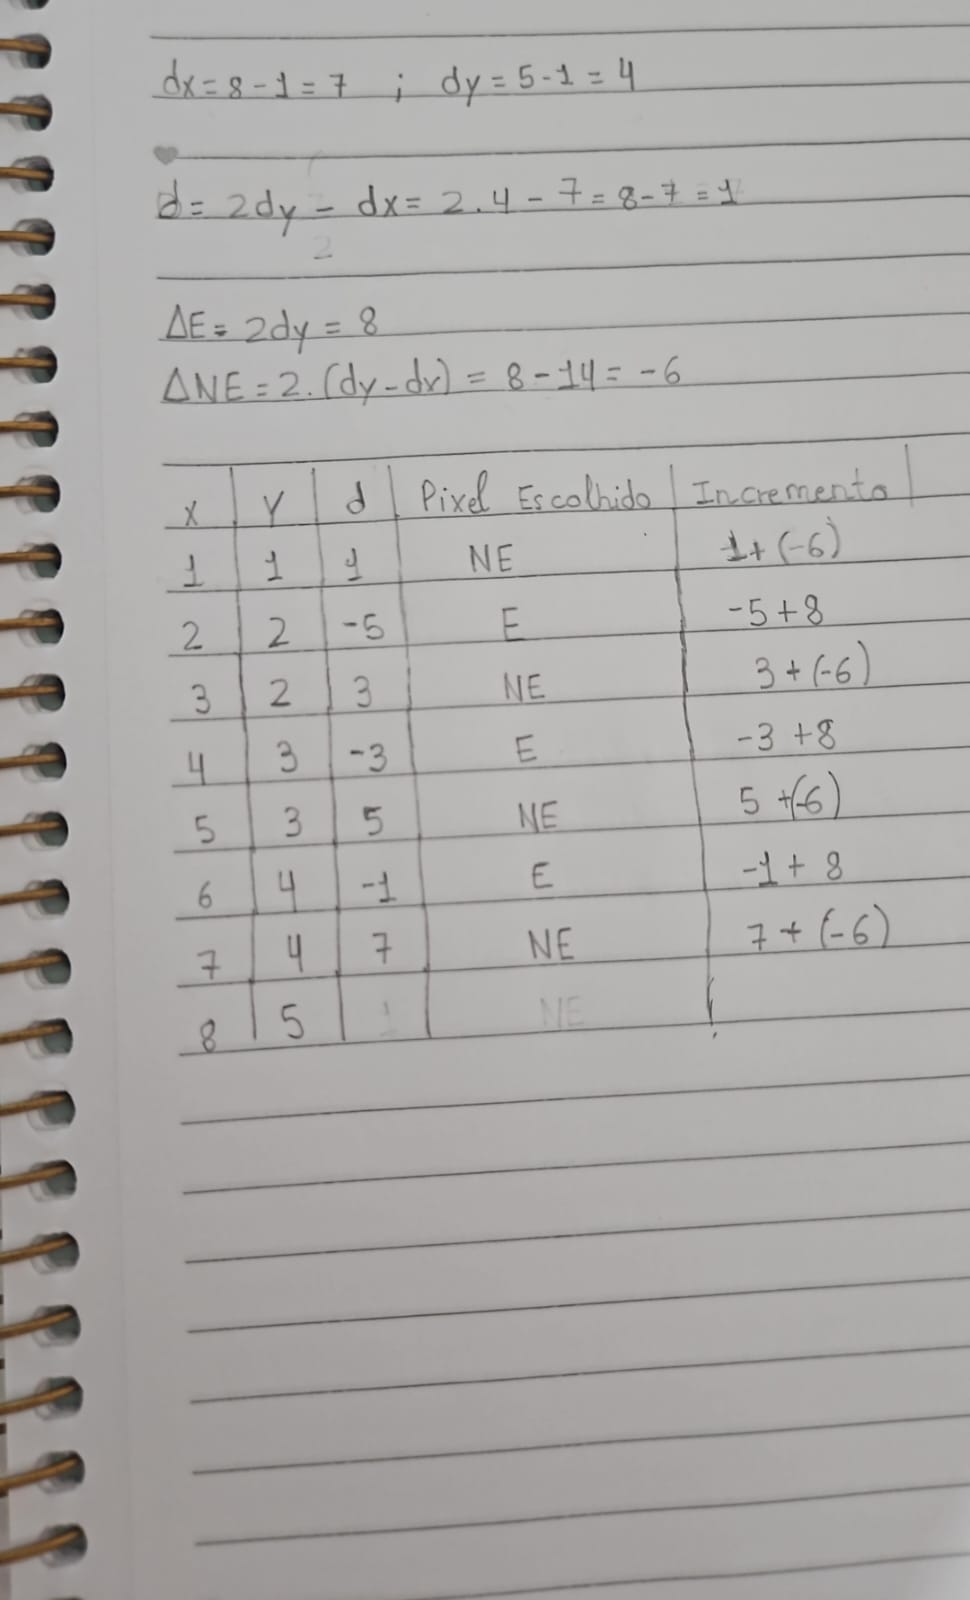 dx = 8 - 1 = 7 ; dy = 5 - 1 = 4
d = 2dy - dx = 2.4 - 7 = 8 - 7 = 1
2
ΔE = 2dy = 8
ΔNE = 2.(dy - dx) = 8 - 14 = -6
x | Y | d | Pixel Escolhido | Incremento |
1 | 1 | 1 | NE | 1 + (-6)
2 | 2 | -5 | E | -5 + 8
3 | 2 | 3 | NE | 3 + (-6)
4 | 3 | -3 | E | -3 + 8
5 | 3 | 5 | NE | 5 + (-6)
6 | 4 | -1 | E | -1 + 8
7 | 4 | 7 | NE | 7 + (-6)
8 | 5 | 1 | NE |